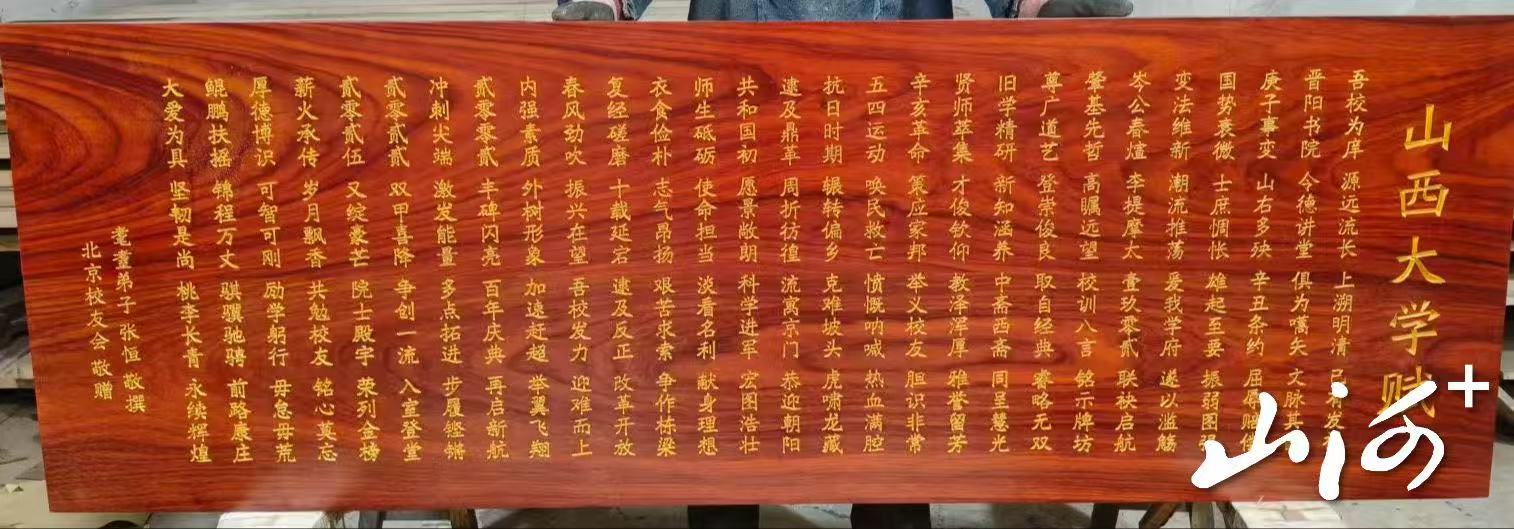 山西大学赋
吾校为庠 源远流长 上溯明清
晋阳书院 令德讲堂 俱为嚆矢 文脉其
庚子事变 山右多殃 辛丑条约 屈辱赔偿
国势衰微 士庶惆怅 雄起至要 振弱图强
变法维新 潮流推荡 爱我学府 遂以滥觞
岑公春煊 李提摩太 壹玖零贰 联袂启航
肇基先哲 高瞻远望 校训八言 铭示牌坊
尊广道艺 登崇俊良 取自经典 睿略无双
旧学精研 新知涵养 中斋西斋 同呈慧光
贤师萃集 才俊钦仰 教泽浑厚 雅誉留芳
辛亥革命 策应家邦 举义校友 胆识非常
五四运动 唤民救亡 愤慨呐喊 热血满腔
抗日时期 辗转偏乡 克难坡头 虎啸龙藏
逮及鼎革 周折彷徨 流离京门 恭迎朝阳
共和国初 愿景敞朗 科学进军 宏图浩壮
师生砥砺 使命担当 淡看名利 献身理想
衣食俭朴 志气昂扬 艰苦求索 争作栋梁
复经磋磨 十载延宕 逮及反正 改革开放
春风劲吹 振兴在望 吾校发力 迎难而上
内强素质 外树形象 加速赶超 举翼飞翔
贰零零贰 丰碑闪亮 百年庆典 再启新航
冲刺尖端 激发能量 多点拓进 步履铿锵
贰零贰贰 双甲喜降 争创一流 入室登堂
贰零贰伍 又绽豪芒 院士殿宇 荣列金榜
薪火承传 岁月飘香 共勉校友 铭心莫忘
厚德博识 可智可刚 励学躬行 毋怠毋荒
鲲鹏扶摇 锦程万丈 骐骥驰骋 前路康庄
大爱为具 坚韧是尚 桃李长青 永续辉煌
耄耋弟子 张恒 敬撰
北京校友会 敬赠
山河+